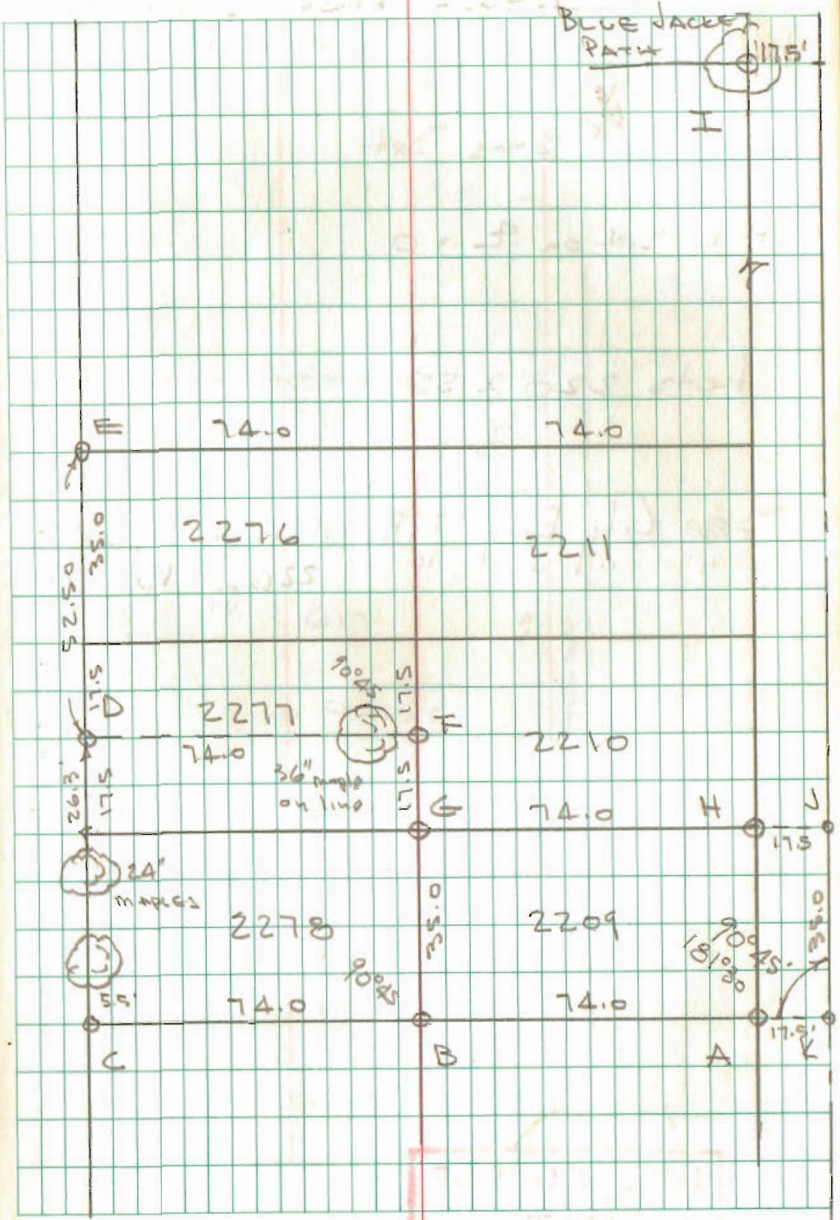 BLUE JACKET
PATH
17.5'
I
E
74.0
74.0
35.0
2276
2211
52.50
17.5
D
2277
90°45
17.5
F
74.0
2210
36" maple
on line
17.5
26.3'
17.5
G
74.0
H
J
17.5
24"
MAPLES
2278
35.0
2209
90°45
181°30
35.0
90°45
5.5'
74.0
74.0
17.5'
C
B
A
K